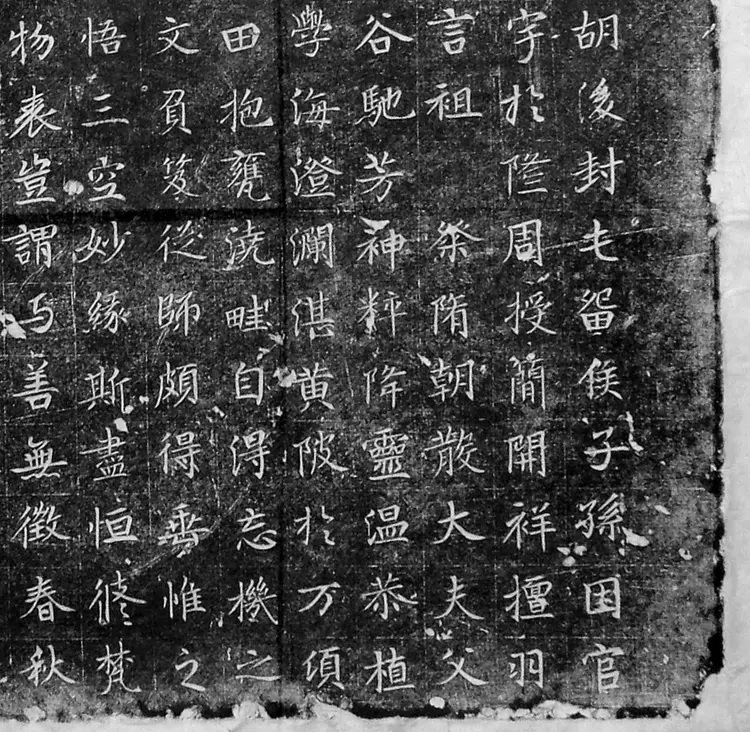 胡後封屯留侯子孫因官
宇於隆周授簡開祥擅羽
言祖 祭隋朝散大夫父
谷馳芳神粹降靈温恭植
學海澄瀾湛黄陂於万頃
田抱甕澆畦自得忘機之
文負笈從師頗得垂惟之
悟三空妙緣斯盡恒脩梵
物表豈謂与善無徵春秋